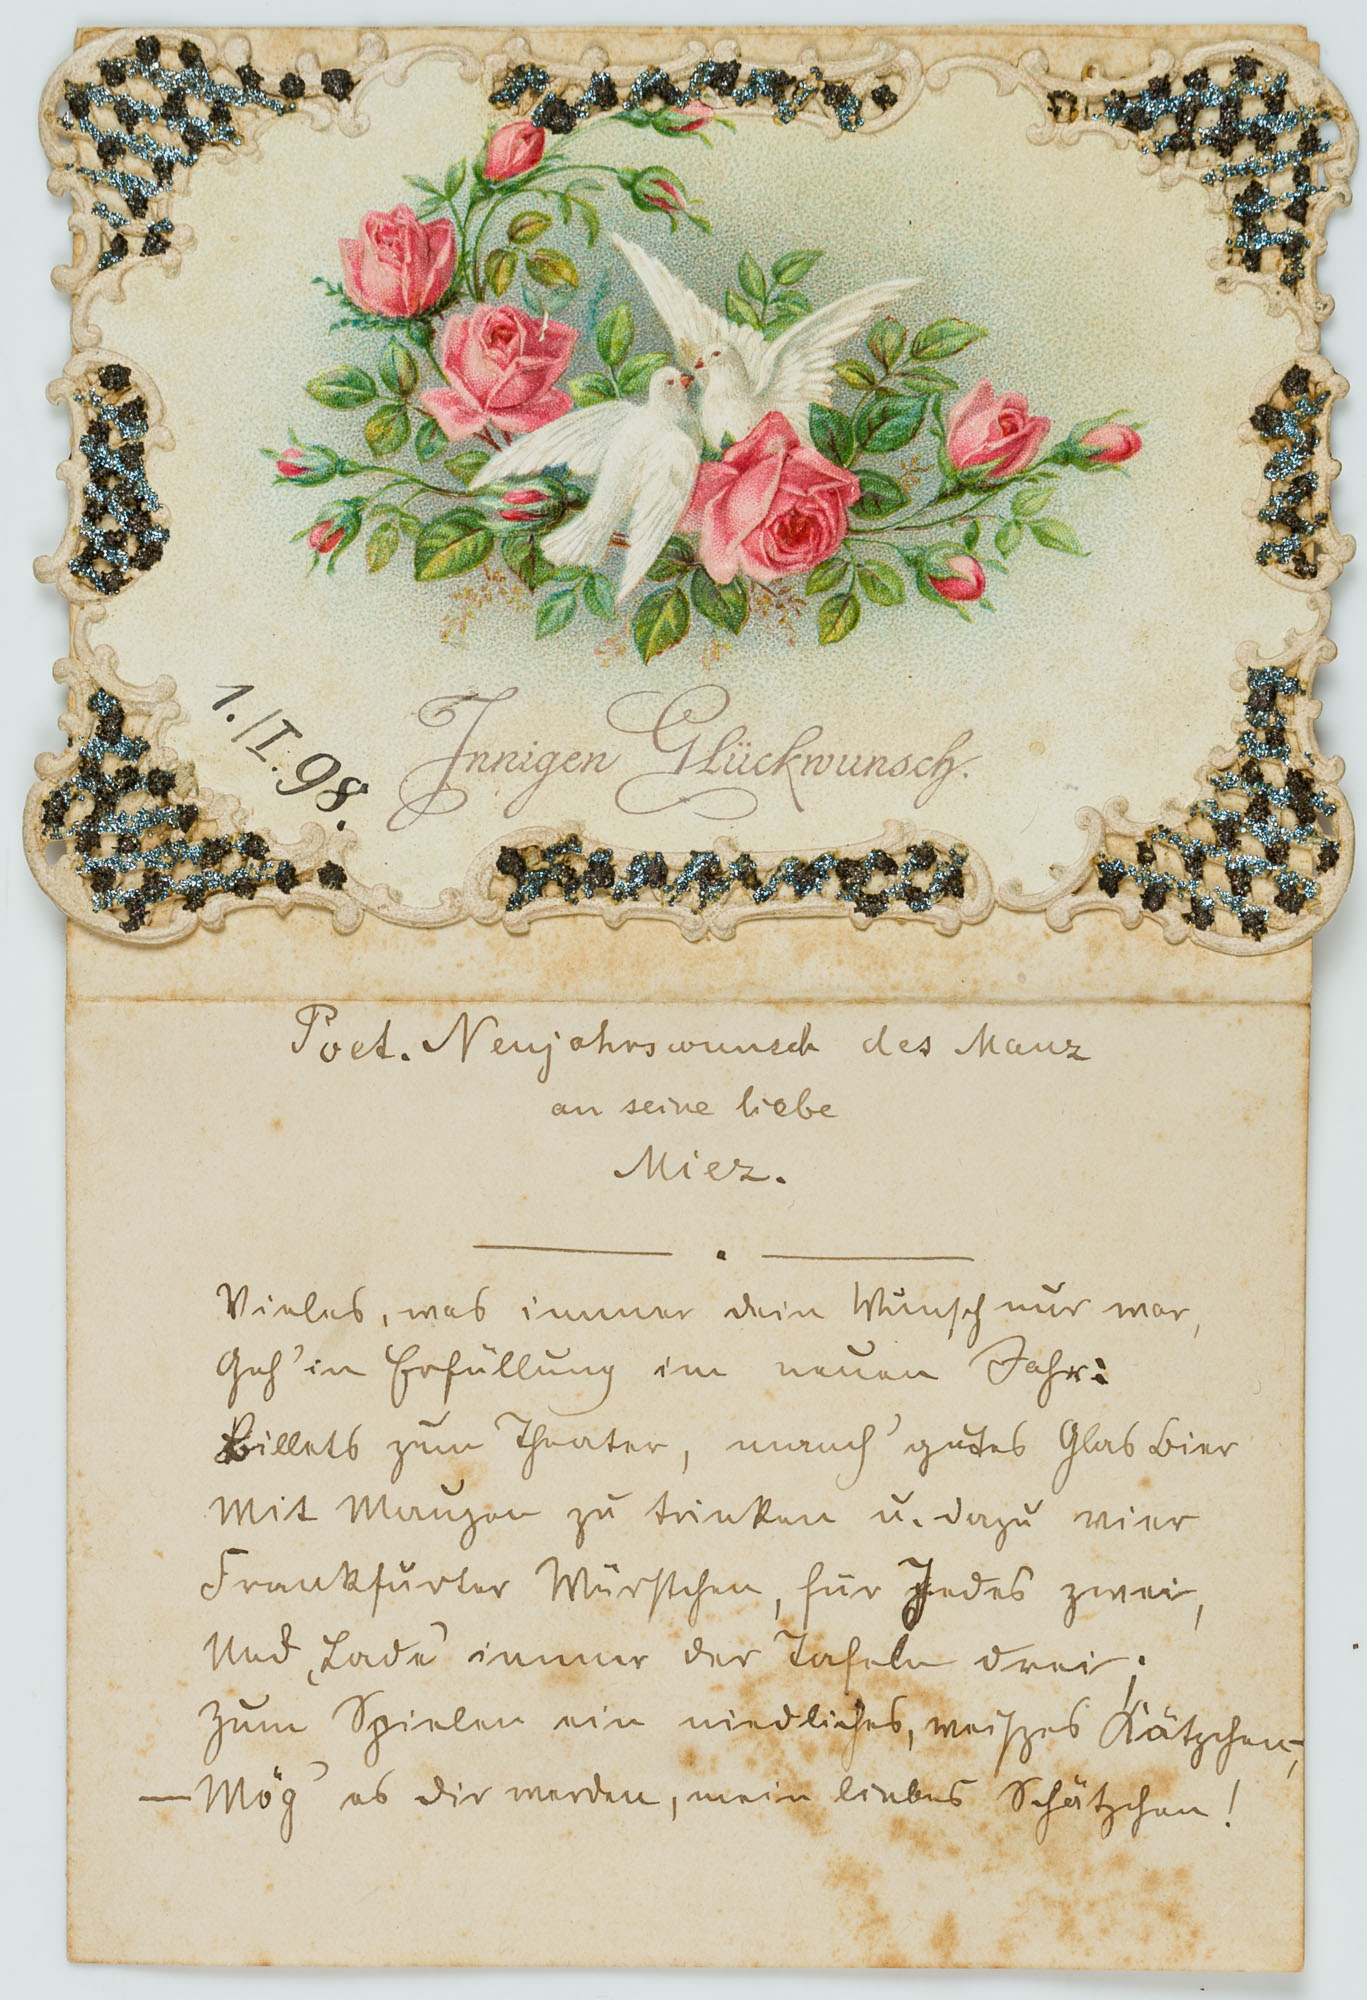 1./I.98.
Innigen Glückwunsch.
Poet. Neujahrswunsch des Mauz
an seine liebe
Miez.
Vieles, was immer dein Wunsch nur war,
Geh' in Erfüllung im neuen Jahr:
Billets zum Theater, manch' gutes Glas Bier
Mit Mauzen zu trinken u. dazu vier
Frankfurter Würstchen, für Jedes zwei,
Und immer der Tafeln drei;
Zum Spielen ein niedliches, weißes Kätzchen,
— Mög' es dir werden, mein liebes Schätzchen!